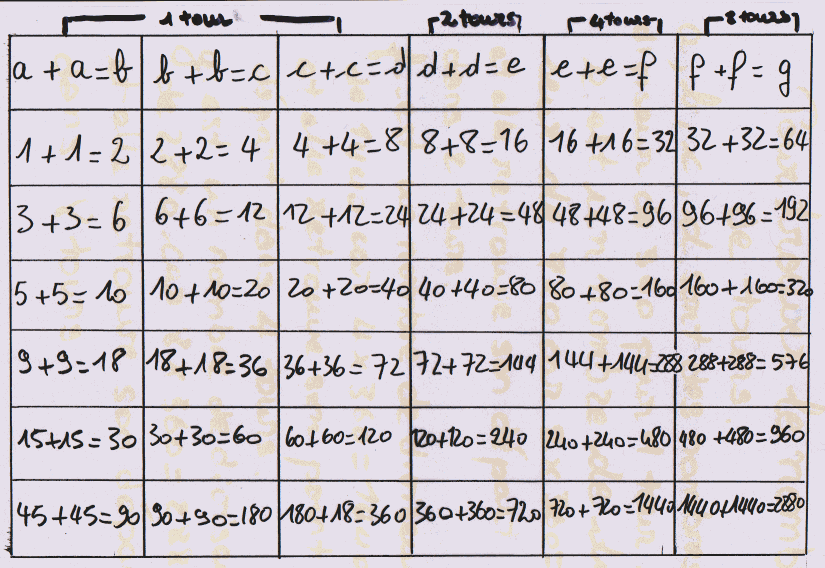 1 tour 2 tours 4 tours 8 tours
a + a = b b + b = c c + c = d d + d = e e + e = f f + f = g
1 + 1 = 2 2 + 2 = 4 4 + 4 = 8 8 + 8 = 16 16 + 16 = 32 32 + 32 = 64
3 + 3 = 6 6 + 6 = 12 12 + 12 = 24 24 + 24 = 48 48 + 48 = 96 96 + 96 = 192
5 + 5 = 10 10 + 10 = 20 20 + 20 = 40 40 + 40 = 80 80 + 80 = 160 160 + 160 = 320
9 + 9 = 18 18 + 18 = 36 36 + 36 = 72 72 + 72 = 144 144 + 144 = 288 288 + 288 = 576
15 + 15 = 30 30 + 30 = 60 60 + 60 = 120 120 + 120 = 240 240 + 240 = 480 480 + 480 = 960
45 + 45 = 90 90 + 90 = 180 180 + 18 = 360 360 + 360 = 720 720 + 720 = 1440 1440 + 1440 = 2880